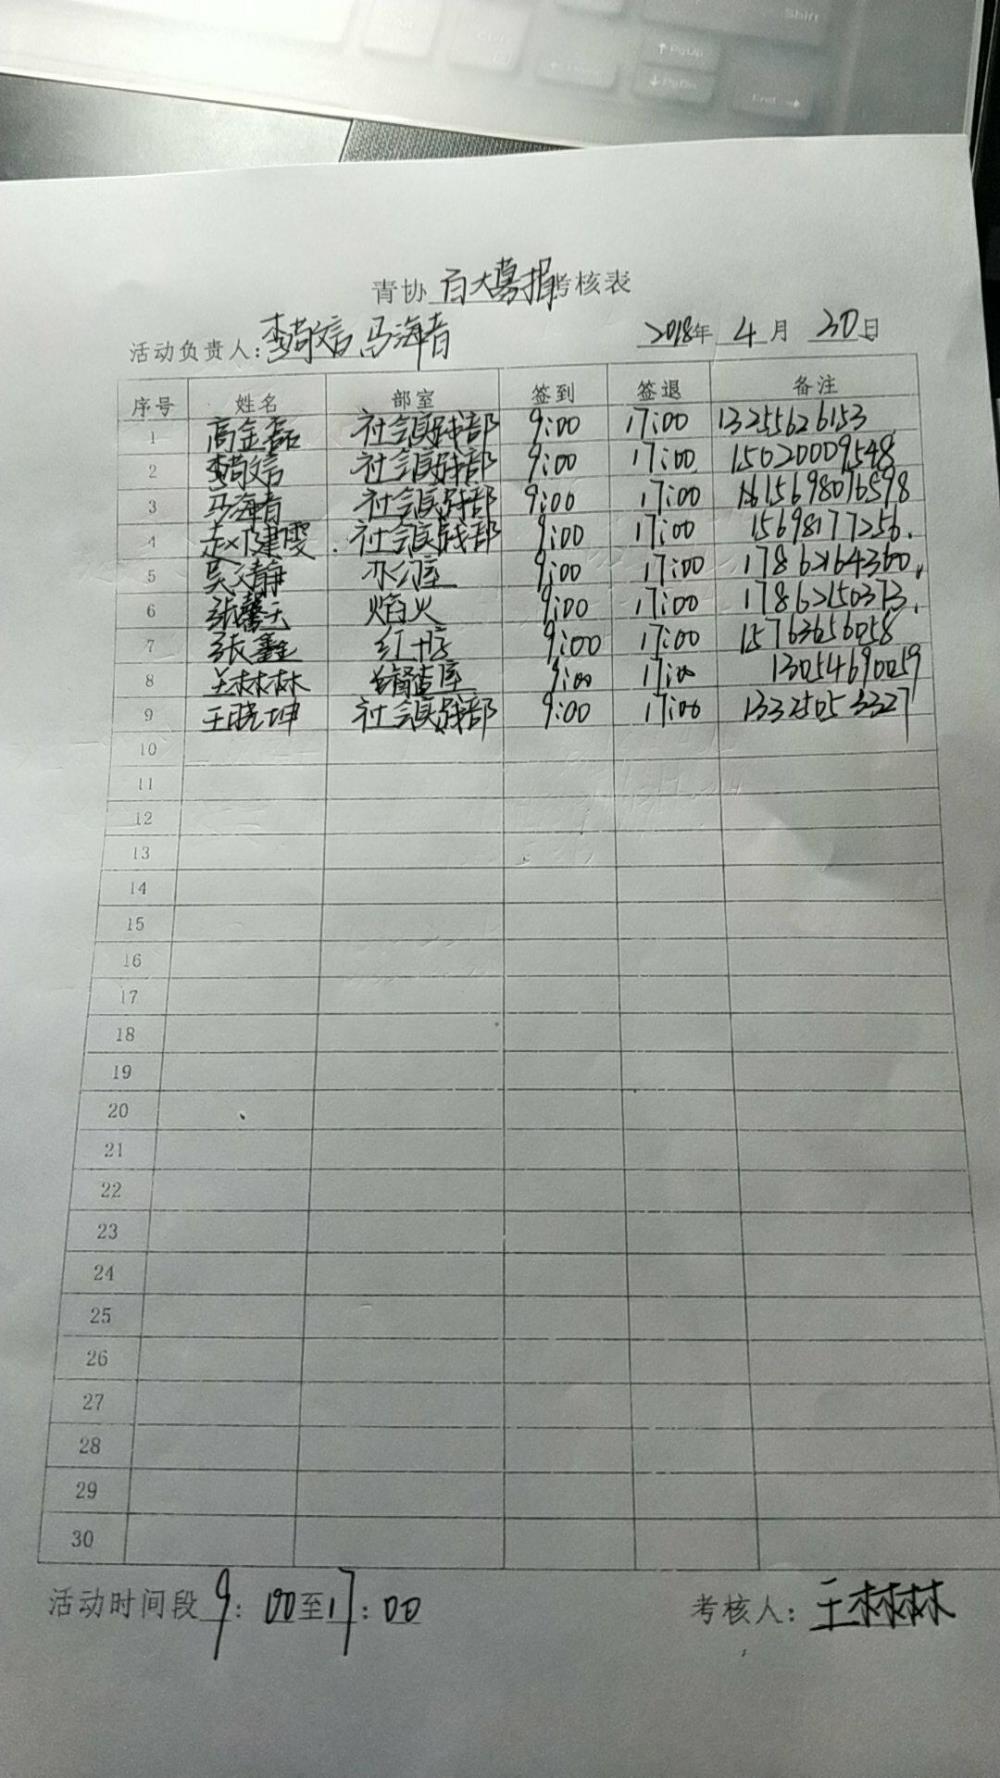 Shift
Ctrl
↑ PgUp
↓ PgDn
End →
青协 百大募捐 考核表
活动负责人: 李敬信 马海青 2018年 4 月 30 日
序号 姓名 部室 签到 签退 备注
1 高金磊 社会实践部 9:00 17:00 13255626153
2 李敬信 社会实践部 9:00 17:00 15020009548
3 马海青 社会实践部 9:00 17:00 15698076598
4 赵建雯 社会实践部 9:00 17:00 15698177256
5 吴文静 办公室 9:00 17:00 17862164360
6 张馨元 焰火 9:00 17:00 17862150373
7 张鑫 红十字 9:00 17:00 15763656058
8 王林林 督查 9:00 17:00 13054690059
9 王晓坤 社会实践部 9:00 17:00 13325053327
10
11
12
13
14
15
16
17
18
19
20
21
22
23
24
25
26
27
28
29
30
活动时间段 9: 00至17: 00 考核人: 王林林